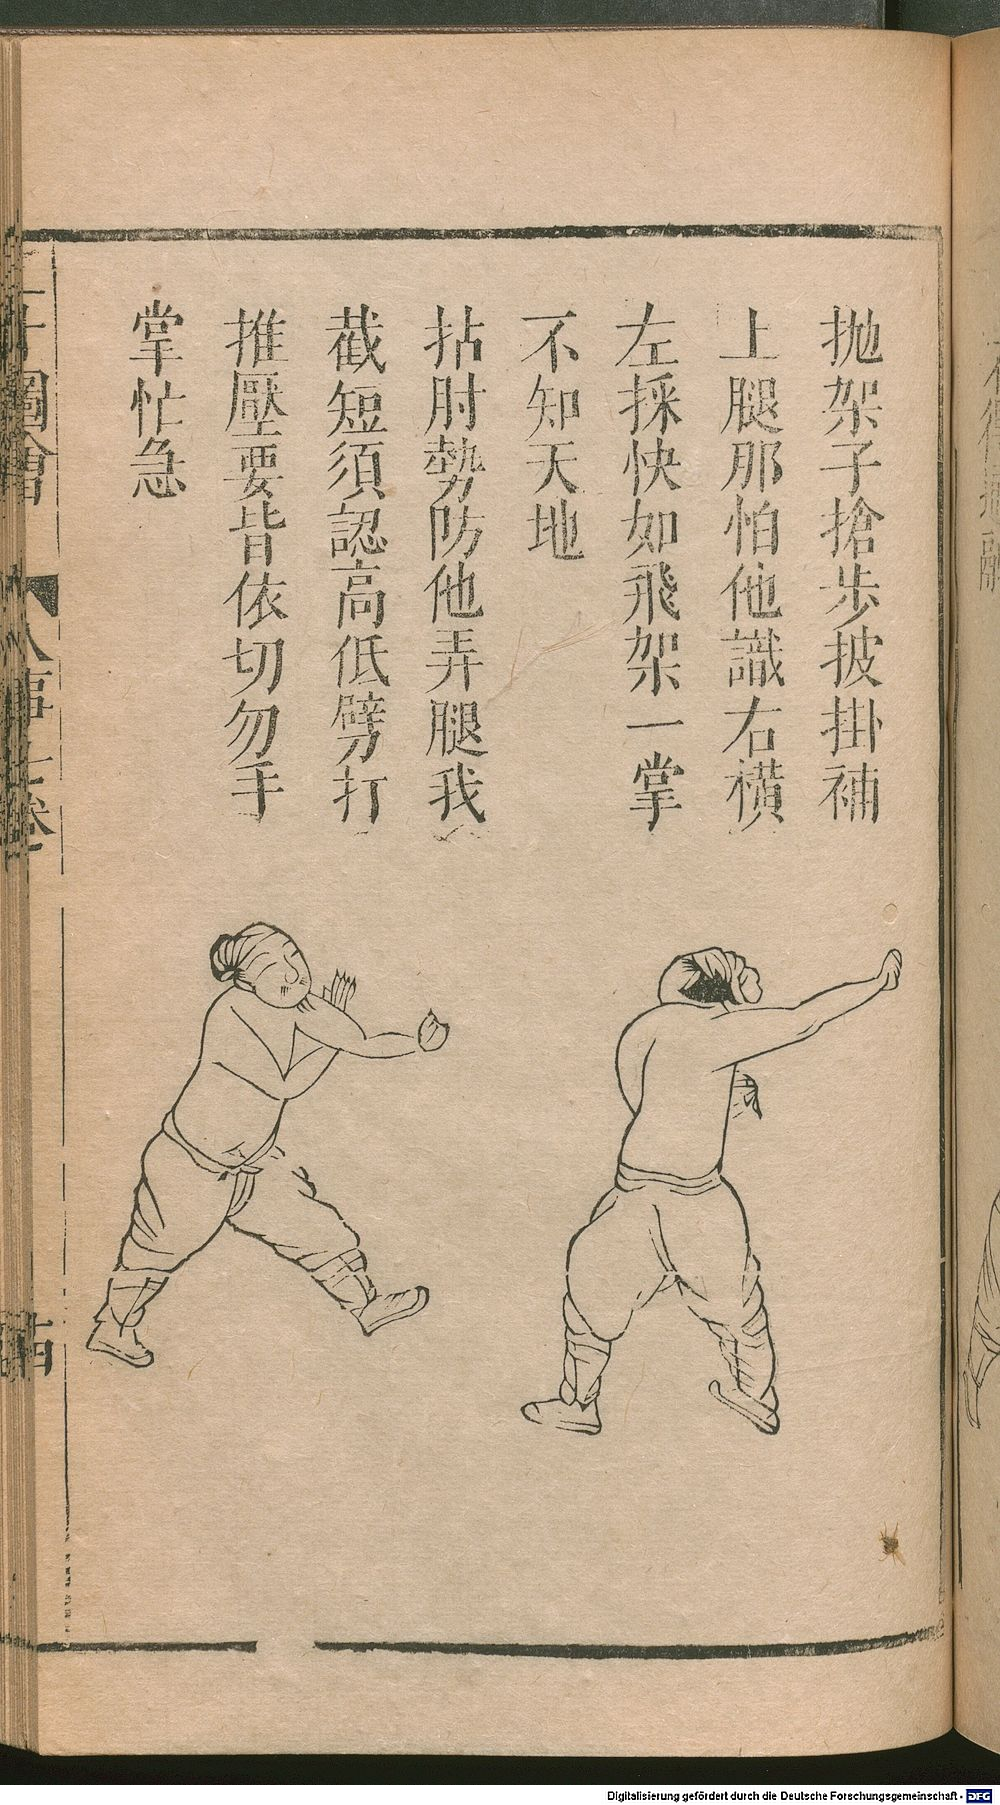 抛架子搶步披掛補
上腿那怕他識右橫
左採快如飛架一掌
不知天地
拈肘勢防他弄腿我
截短須認高低劈打
推壓要皆依切勿手
掌忙急
圖會
人事
卷
Digitalisierung gefördert durch die Deutsche Forschungsgemeinschaft - DFG